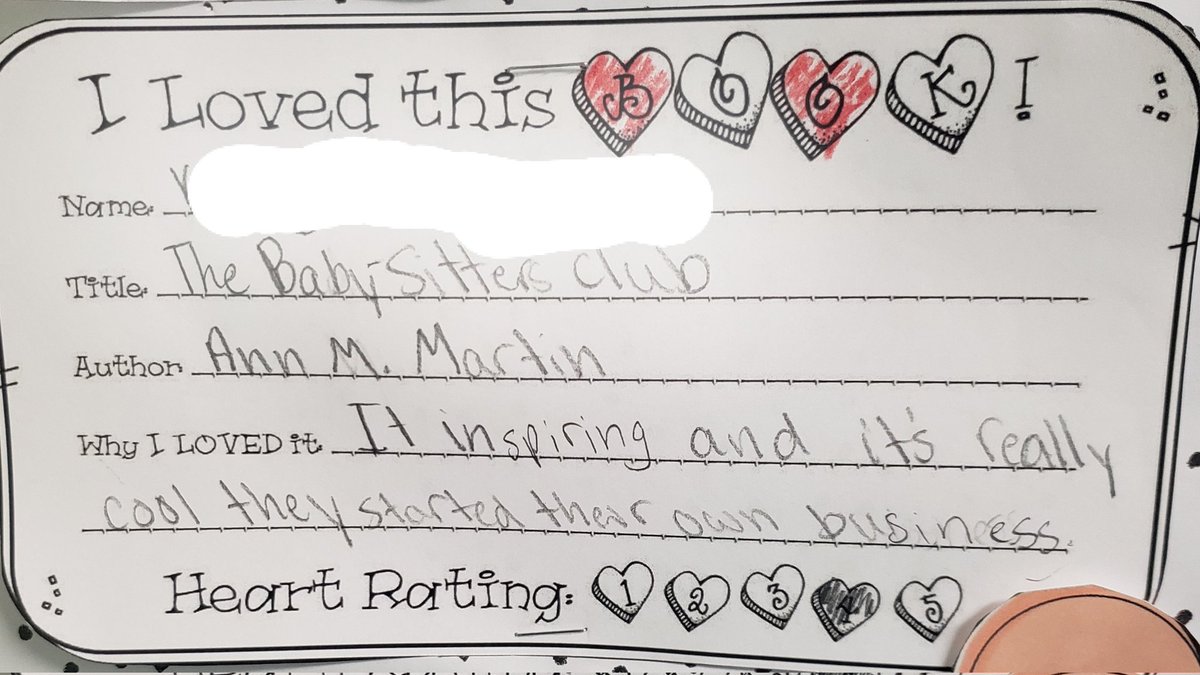 I Loved this BOOK!
Name:
Title: The Baby-Sitters club
Author: Ann M. Martin
Why I LOVED it: It inspiring and it's really
cool they started their own business.
Heart Rating: 1 2 3 4 5